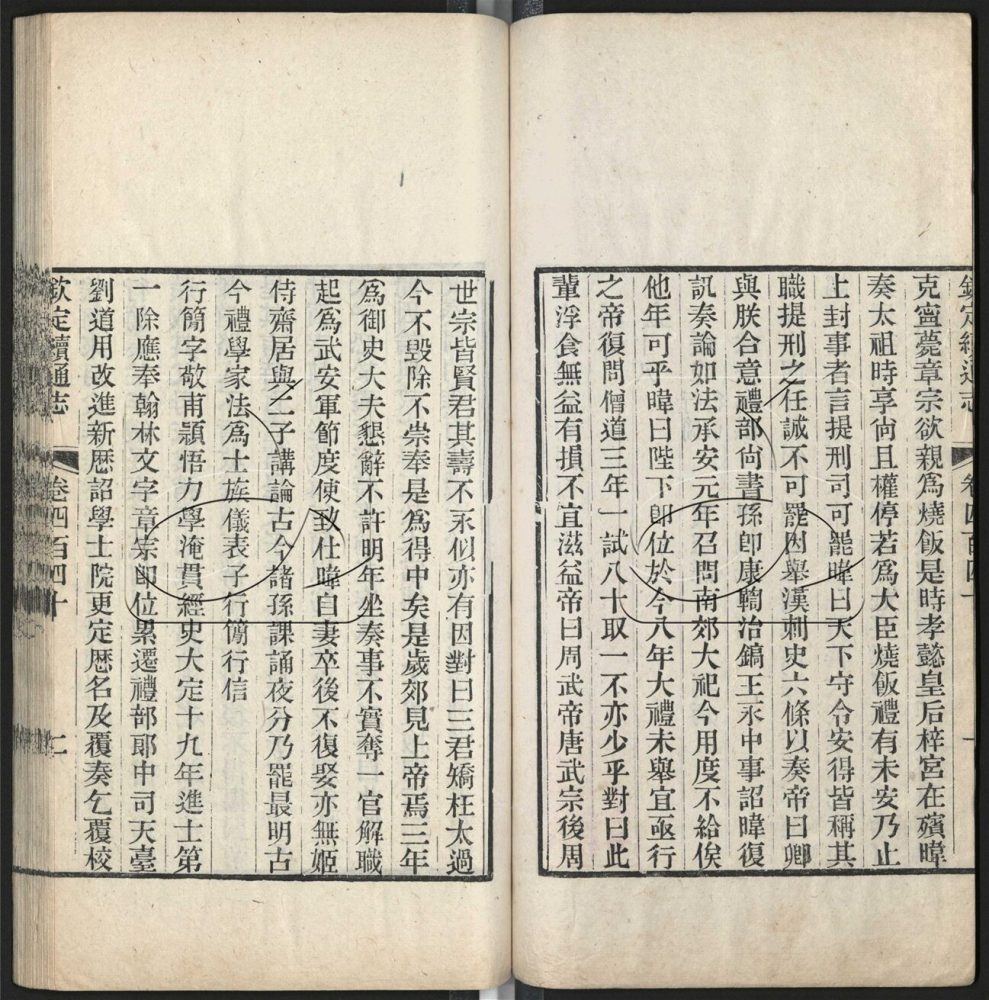 欽定續通志 卷四百四十 一
克寧薨章宗欲親爲燒飯是時孝懿皇后梓宮在殯暐
奏太祖時享尙且權停若爲大臣燒飯禮有未安乃止
上封事者言提刑司可罷暐曰天下守令安得皆稱其
職提刑之任誠不可罷因舉漢刺史六條以奏帝曰卿
與朕合意禮部尙書孫卽康鞫治鎬王永中事詔暐復
訊奏論如法承安元年召問南郊大祀今用度不給俟
他年可乎暐曰陛下卽位於今八年大禮未舉宜亟行
之帝復問僧道三年一試八十取一不亦少乎對曰此
輩浮食無益有損不宜滋益帝曰周武帝唐武宗後周
世宗皆賢君其壽不永似亦有因對曰三君矯枉太過
今不毀除不崇奉是爲得中矣是歲郊見上帝焉三年
爲御史大夫懇辭不許明年坐奏事不實奪一官解職
起爲武安軍節度使致仕暐自妻卒後不復娶亦無姬
侍齋居與二子講論古今諸孫課誦夜分乃罷最明古
今禮學家法爲士族儀表子行簡行信
行簡字敬甫穎悟力學淹貫經史大定十九年進士第
一除應奉翰林文字章宗卽位累遷禮部郞中司天臺
劉道用改進新曆詔學士院更定曆名及覆奏乞覆校
欽定續通志 卷四百四十 二